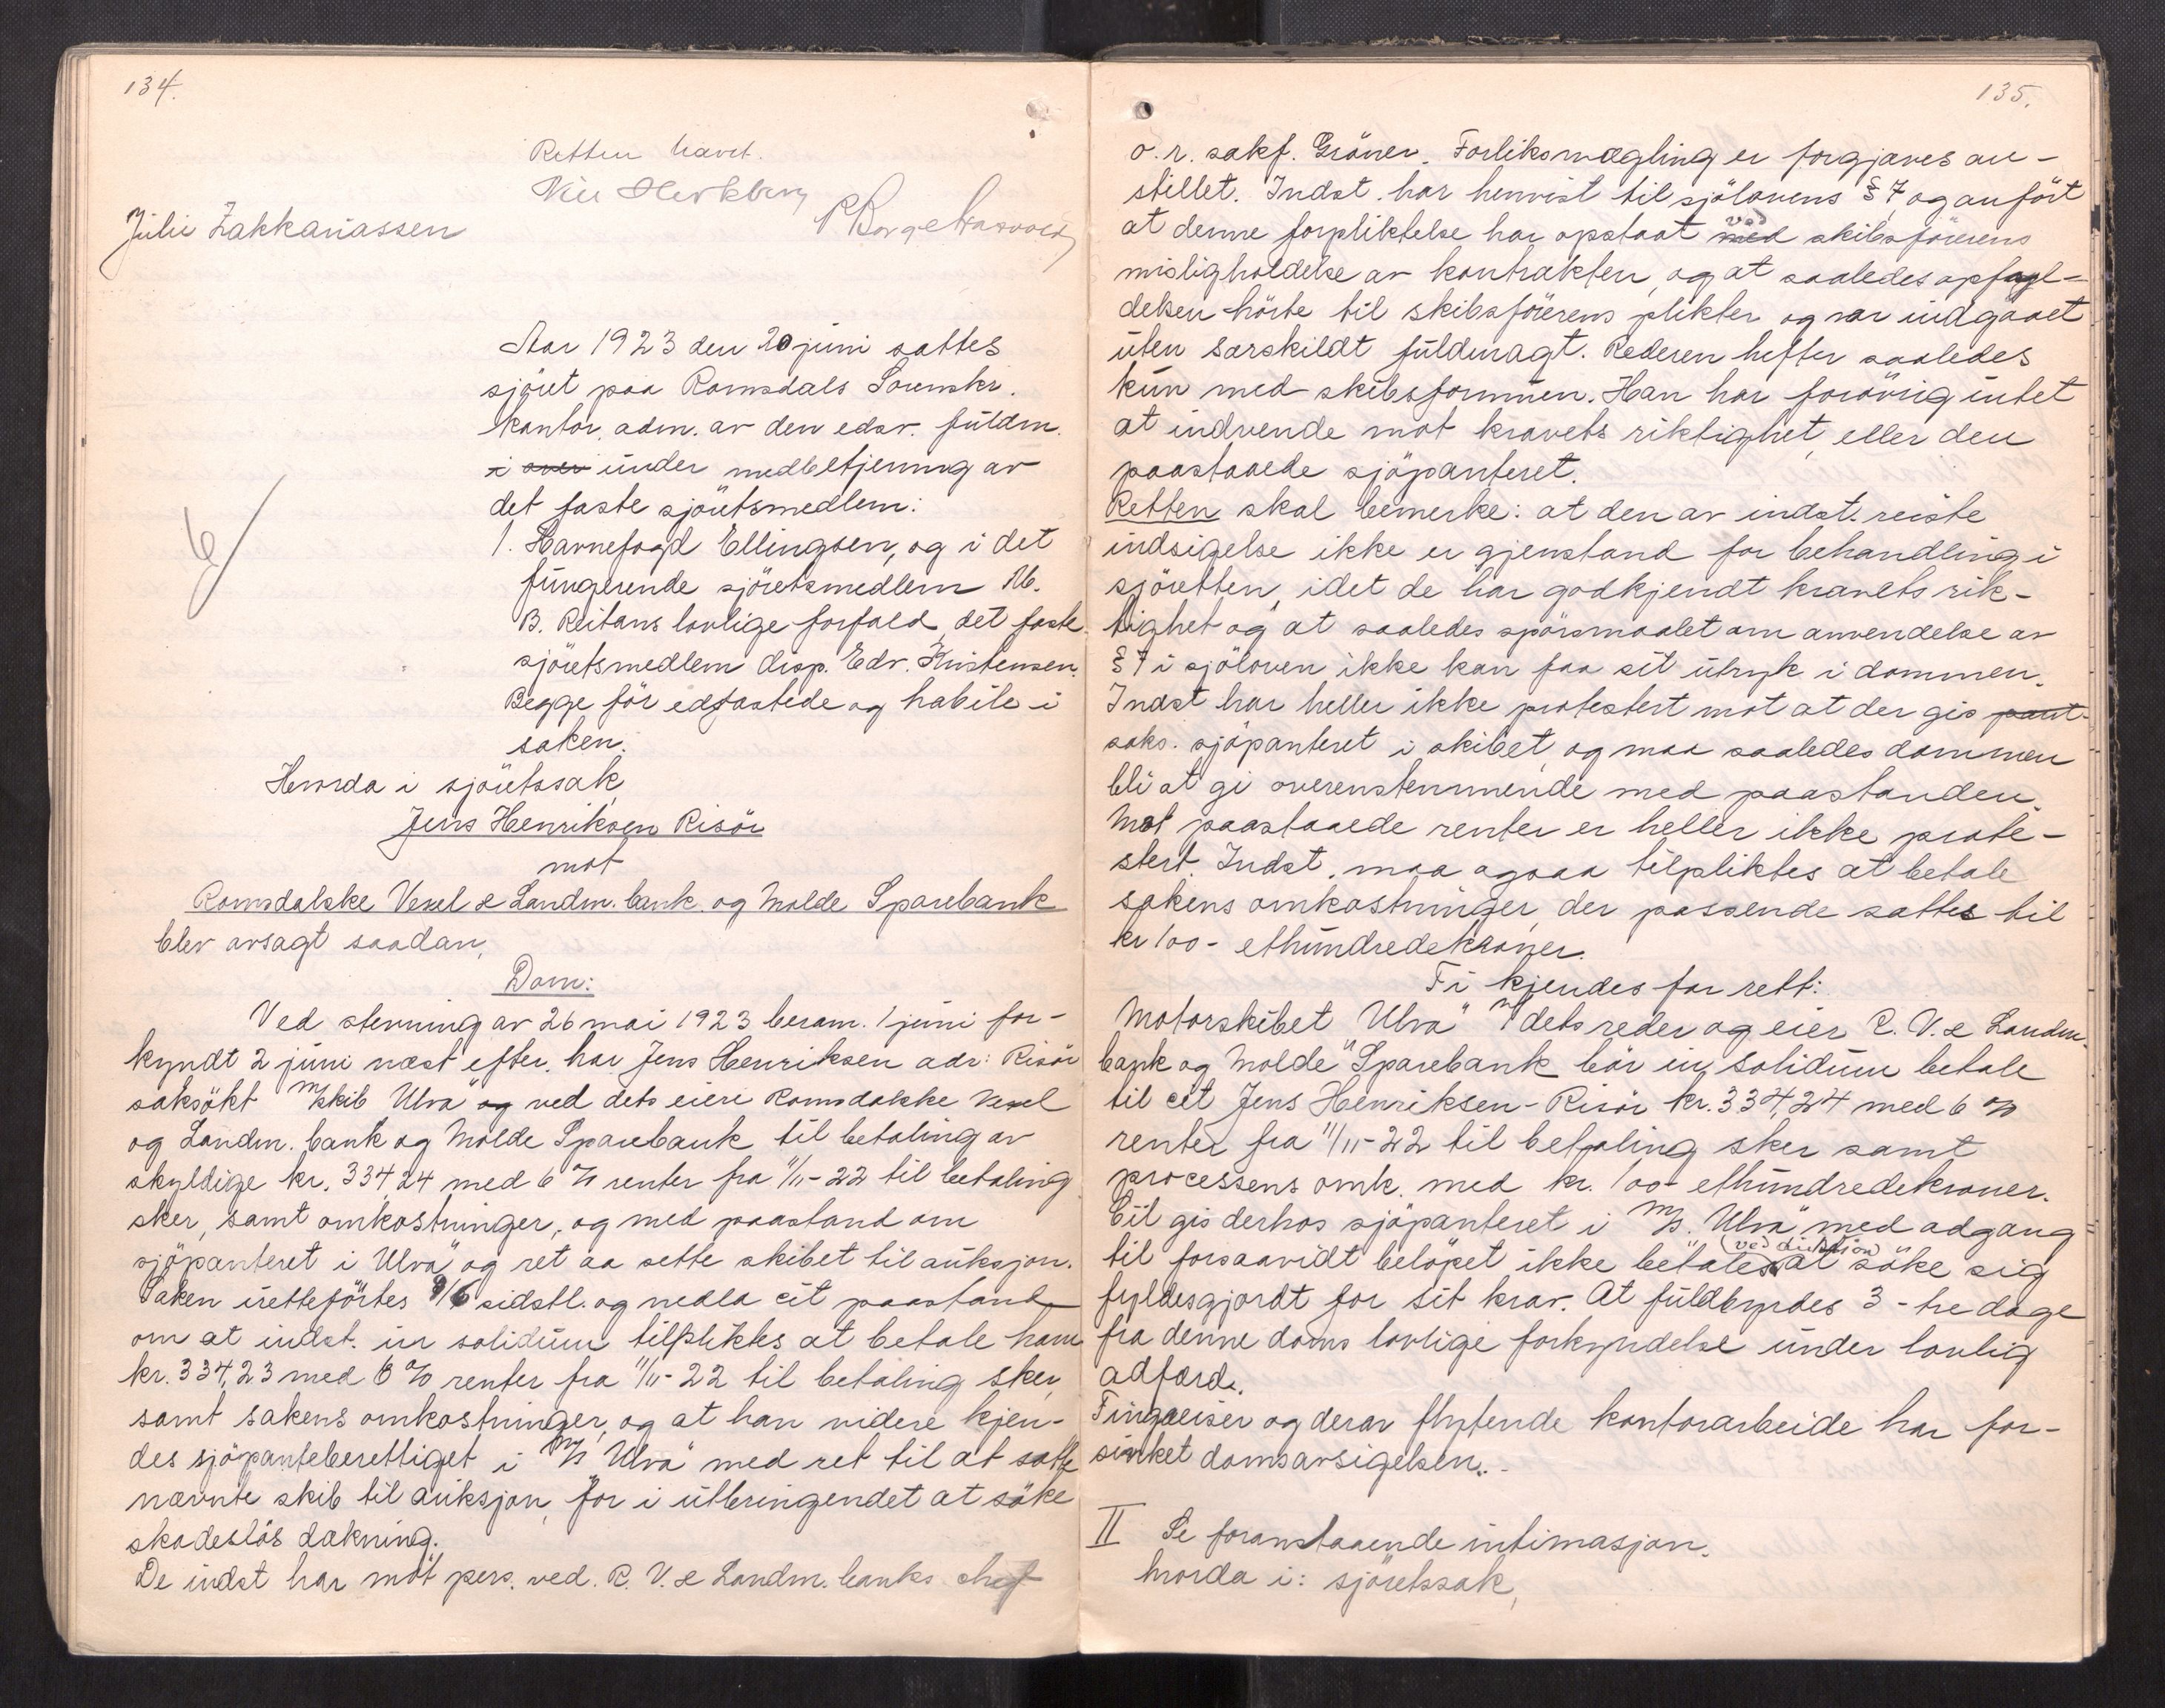 134.
Retten hævet.
Julie Zakkariassen
Aar 1923 den 20 juni sattes
sjöret paa Romsdals Sorenskr.
kontor, adm. av den edsv. fuldm.
i over under medbetjening av
det faste sjöretsmedlem:
1. Havnefogd Ellingsen, og i det
fungerende sjöretsmedlem M.
B. Reitans lovlige forfald, det faste
sjöretsmedlem disp. Edv. Kristensen.
Begge för edfæstede og habile i
saken.
Hvorda i sjöretssak
Jens Henriksen Risör
mot
Romsdalske Vexel & Landm. bank. og Molde Sparebank
blev avsagt saadan,
Dom:
Ved stevning av 26 mai 1923 beram. 1 juni for-
kyndt 2 juni næst efter, har Jens Henriksen adr: Risör
saksökt m/skib Ulva" og ved dets eiere Romsdalske Vexel
og Landm. bank og Molde Sparebank til betaling av
skyldige kr. 334,24 med 6 % renter fra 11/11-22 til betaling
sker, samt omkostninger, og med paastand om
sjöpanteret i Ulva" og ret aa sette skibet til auksjon.
Saken iretteförtes 9/6 sidstl. og nedla cit paastand
om at indst. in solidum tilpliktes at betale ham
kr. 334,23 med 6 % renter fra 11/11-22 til betaling sker,
samt sakens omkostninger, og at han videre kjen-
des sjöpanteberettiget i m/s Ulva" med ret til at sætte
nævnte skib til auksjon, for i utbringendet at söke
skadeslös dækning.
De indst har möt pers. ved. R. V. & Landm. banks chef
135.
o. r. sakf. Gröner. Forliksmægling er forgjæves an-
stillet. Indst. har henvist til sjölovens § 7, og anfört
at denne forpliktelse har opstaat med ved skibsförerens
misligholdelse av kontrakten, og at saaledes opfyl-
delsen hörte til skibsförerens plikter og var indgaaet
uten særskildt fuldmagt. Rederen hefter saaledes
kun med skibsformuen. Han har forövrig intet
at indvende mot kravets riktighet, eller den
paastaaede sjöpanteret.
Retten skal bemerke: at den av indst. reiste
indsigelse ikke er gjenstand for behandling i
sjöretten, idet de har godkjendt kravets rik-
tighet og at saaledes spörsmaalet om anvendelse av
§ 7 i sjöloven ikke kan faa sit utryk i dommen.
Indst har heller ikke protestert mot at der gis pant
saks. sjöpanteret i skibet, og maa saaledes dommen
bli at gi overenstemmende med paastanden.
Mot paastaaede renter er heller ikke prote-
stert. Indst. maa ogsaa tilpliktes at betale
sakens omkostninger, der passende sattes til
kr 100- ethundredekroner.
Ti kjendes for rett:
Motorskibet Ulva" v/ dets reder og eier R. V. & Landm.
bank og Molde Sparebank bör in solidum betale
til cit Jens Henriksen-Risör kr. 334,24 med 6 %
renter fra 11/11-22 til betaling sker samt
processens omk. med kr. 100- ethundredekroner.
Cit gis derhos sjöpanteret i m/s. Ulva" med adgang
til forsaavidt belöpet ikke betales (ved auktion) at söke sig
fyldesgjordt for sit krav. At fuldbyrdes 3-tre dage
fra denne doms lovlige forkyndelse under lovlig
adfærd.
Tingreiser og derav flytende kontorarbeide har for-
sinket domsavsigelsen.
II Se foranstaaende intimasjon.
hvorda i: sjöretssak,